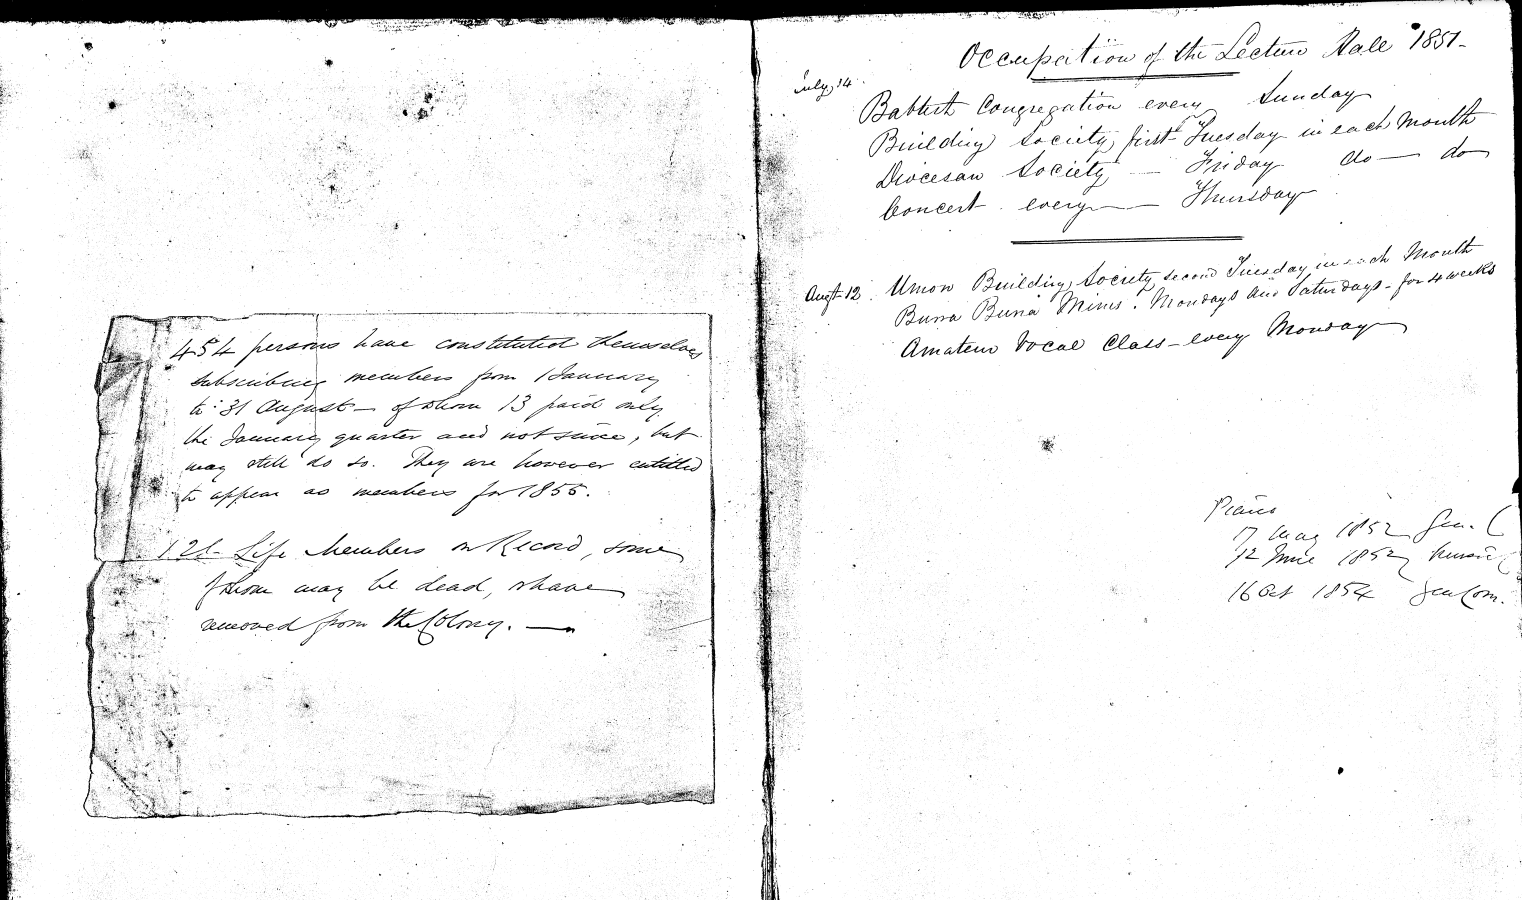 454 persons have constituted themselves
subscribing members from 1 January
to 31 August — of whom 13 paid only
the January quarter and not since, but
may still do so. They are however entitled
to appear as members for 1855.
Life Members on Record, some
of whom may be dead, or have
removed from the Colony. —
Occupation of the Lecture Hall 1851-
July 14
Babtist Congregation every Sunday
Building Society first Tuesday in each Month
Diocesan Society — Friday do — do
Concert every — Thursday
Augt 12. Union Building Society second Tuesday in each Month
Burra Burra Mines. Mondays and Saturdays - for 4 weeks
Amateur Vocal Class - every Monday
Piano
17 May 1852 Gen. C
12 June 1852
16 Oct 1854 Gen Com.